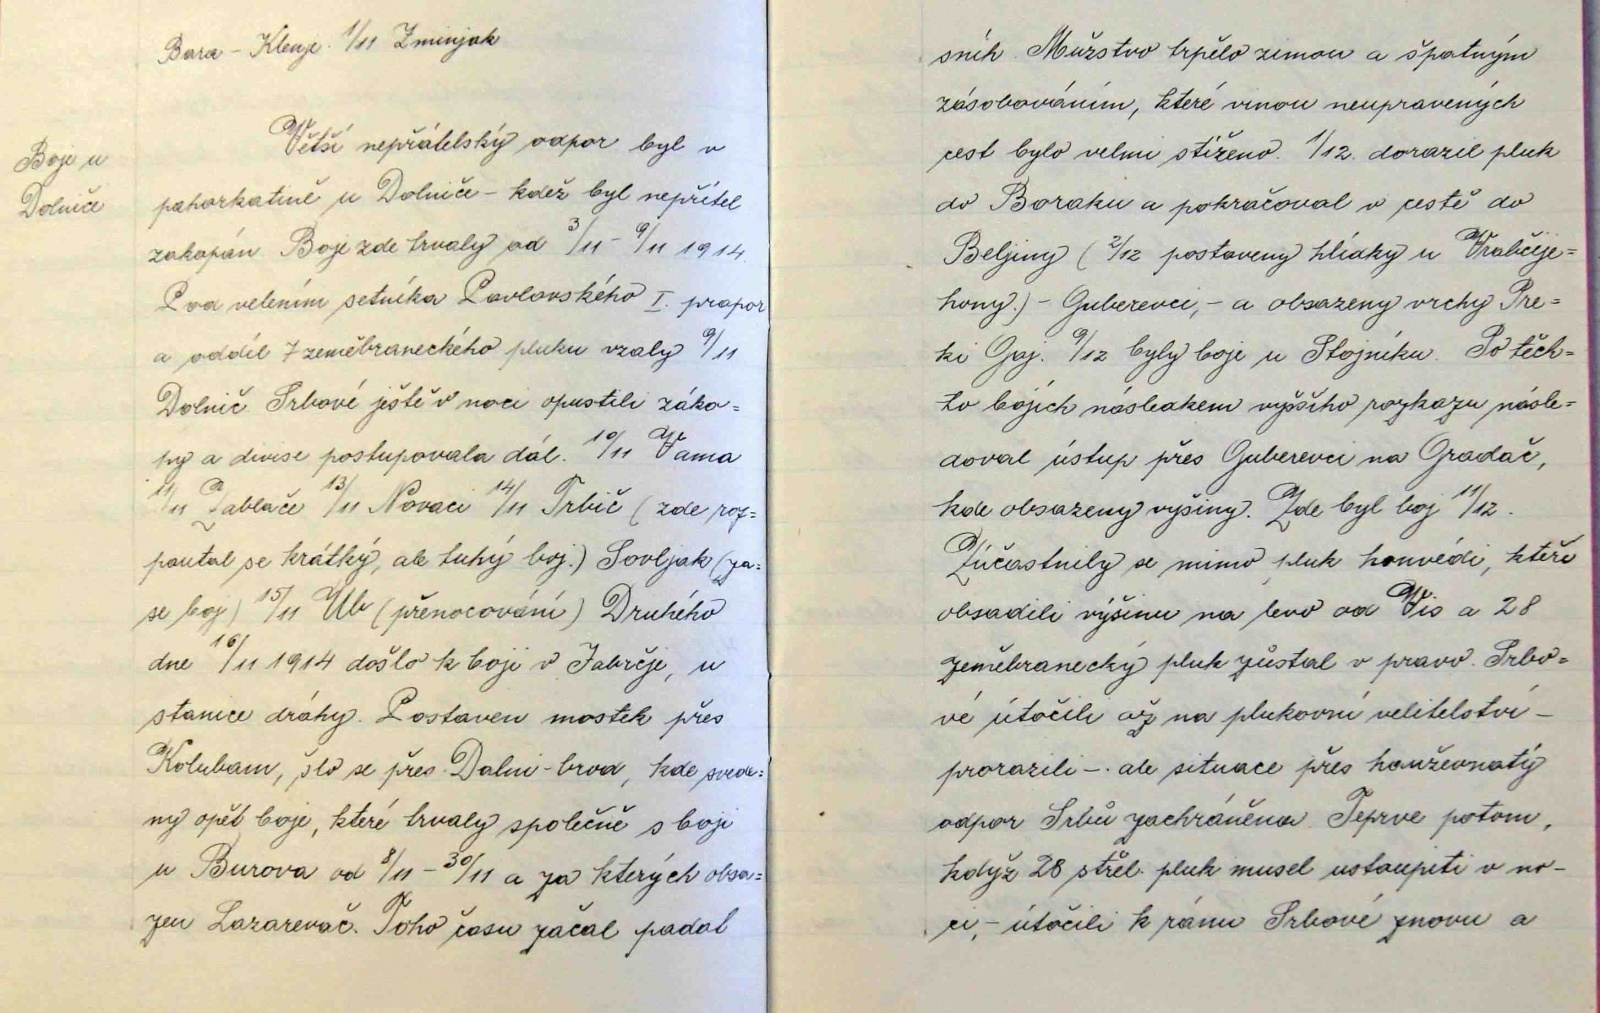 Bara – Klenje. 1/11 Zminjak
Boje u
Dolniče
Větší nepřátelský odpor byl v
pahorkatině u Dolniče – kdež byl nepřítel
zakopán. Boje zde trvaly od 3/11 – 9/11 1914.
Pod velením setníka Pavlovského I. prapor
a oddíl 7 zeměbraneckého pluku vzaly 9/11
Dolnič. Srbové ještě v noci opustili záko=
py a divise postupovala dál. 10/11 Vama
11/11 Zablače 13/11 Novaci 14/11 Trbič (zde roz=
poutal se krátký, ale tuhý boj.) Sovljak (za=
se boj) 15/11 Ub (přenocování) Druhého
dne 16/11 1914 došlo k boji v Jabrčje, u
stanice dráhy. Postaven mostek přes
Kolubam, šlo se přes Dalni-brod, kde svede=
ny opět boje, které trvaly společně s boji
u Burova od 8/11 – 30/11 a za kterých obsa=
zen Lazarevač. Toho času začal padat
sníh. Mužstvo trpělo zimou a špatným
zásobováním, které vinou neupravených
cest bylo velmi stíženo. 1/12. dorazil pluk
do Boraku a pokračoval v cestě do
Beljiny (2/12 postaveny hlídky u Vrabčije=
hony.) – Guberevci, – a obsazeny vrchy Pre=
ki Gaj. 9/12 byly boje u Stojniku. Po těch=
to bojích následkem vyššího rozkazu násle=
doval ústup přes Guberevci na Gradač,
kde obsazeny výšiny. Zde byl boj 11/12.
Zúčastnily se mimo pluk honvédi, kteří
obsadili výšinu na levo od Vis a 28
zeměbranecký pluk zůstal v pravo. Srbo=
vé útočili až na plukovní velitelství –
prorazili –. ale situace přes houževnatý
odpor Srbů zachráněna. Teprve potom,
když 28 střel. pluk musel ustoupiti v no-
ci, – útočili k ránu Srbové znovu a